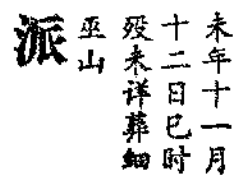 未年十一月
十二日巳时
殁未详葬细
巫山
派